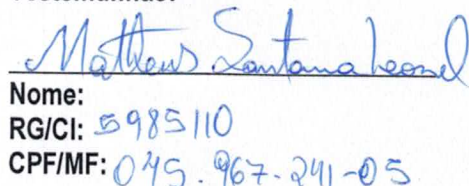 Matheus Santana Leonel
Nome:
RG/CI: 5985110
CPF/MF: 045.967-241-05